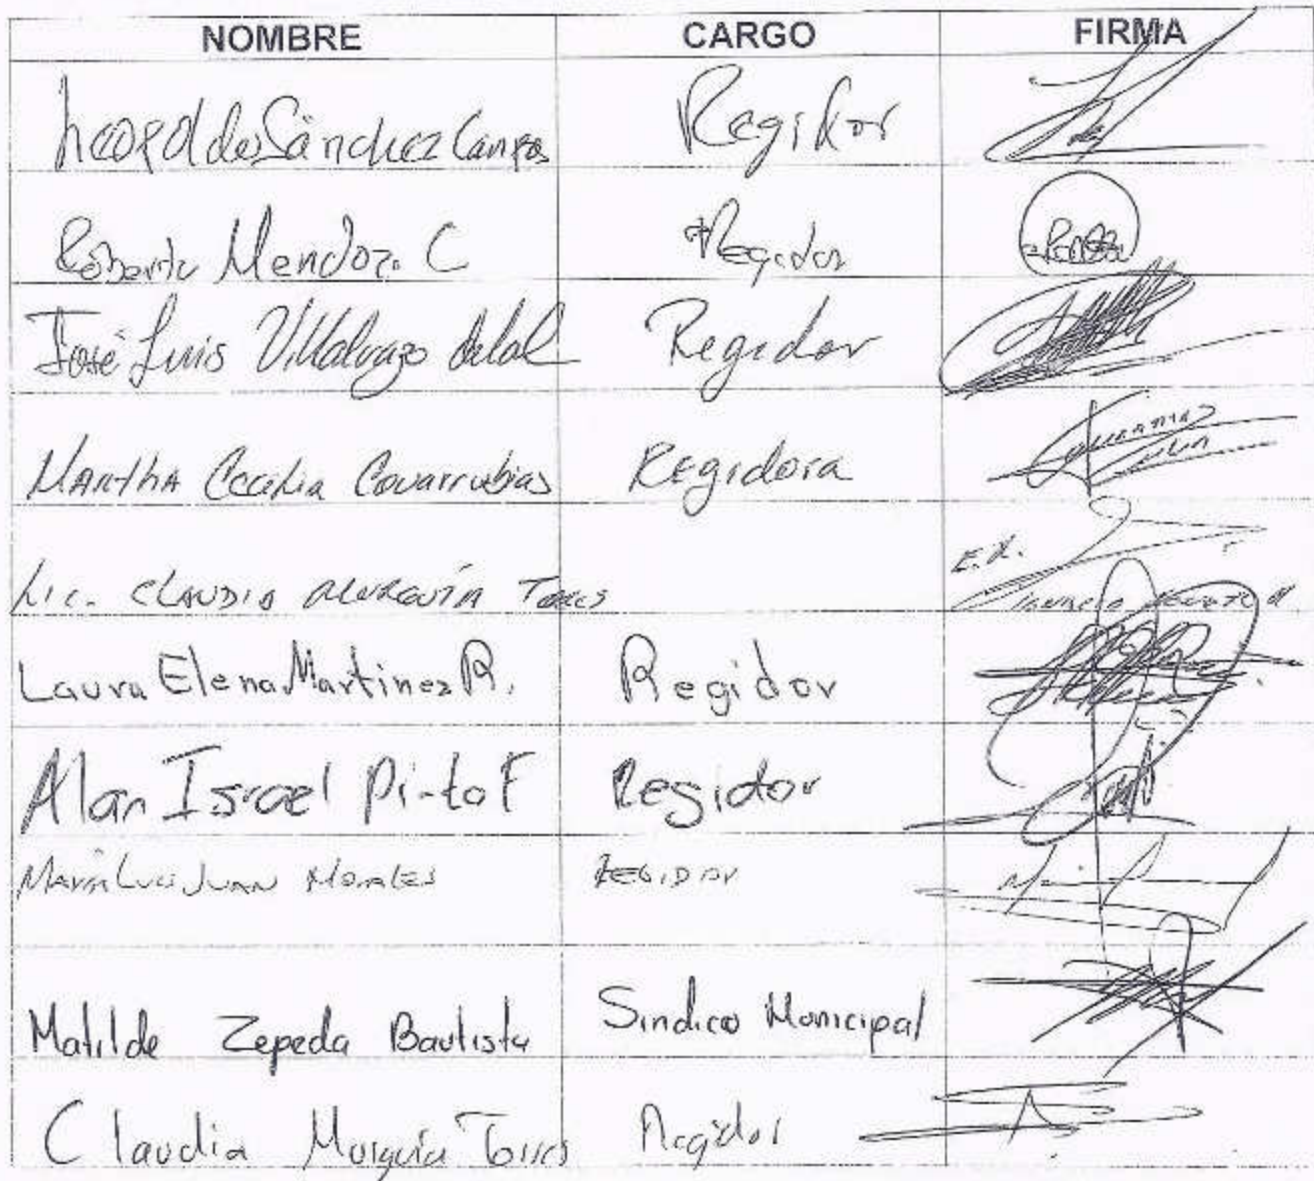 NOMBRE CARGO FIRMA
Leopoldo Sánchez Campos Regidor
Roberto Mendoza C Regidor
José Luis Villalvazo delaC Regidor
Martha Cecilia Covarrubias Regidora
Lic. CLAUDIA MURGUÍA Torres E.R.
Laura Elena Martinez R. Regidor
Alan Israel Pinto F Regidor
María Luis Juan Morales REGIDOR
Matilde Zepeda Bautista Sindico Municipal
Claudia Murguía Torres Regidor